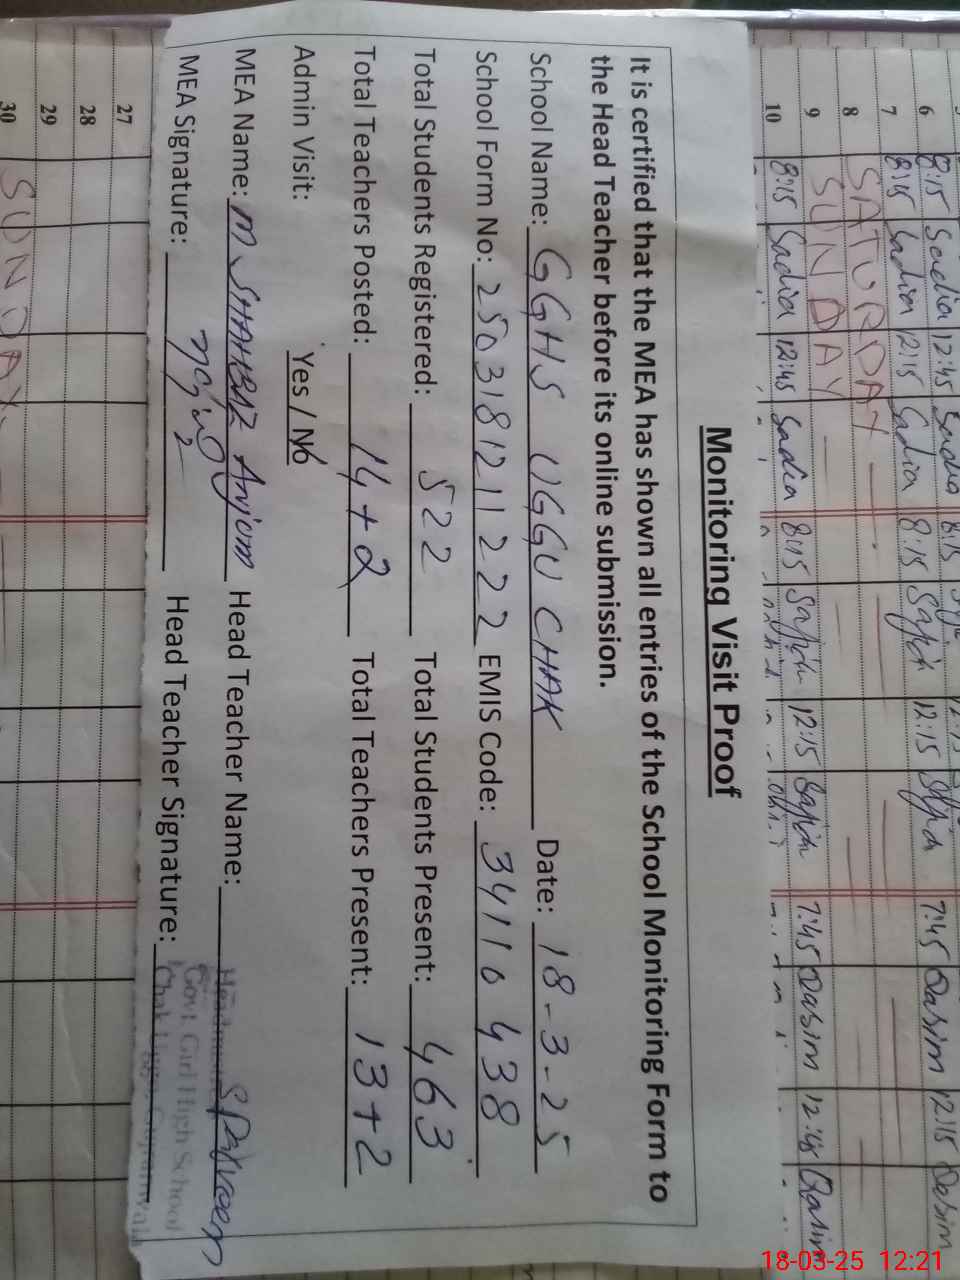 Monitoring Visit Proof
It is certified that the MEA has shown all entries of the School Monitoring Form to
the Head Teacher before its online submission.
School Name: GGHS UGGU CHAK Date: 18-3-25
School Form No: 2503181211222 EMIS Code: 34110438
Total Students Registered: 522 Total Students Present: 463
Total Teachers Posted: 14+2 Total Teachers Present: 13+2
Admin Visit: Yes / No
MEA Name: M SHAHBAZ Anjum Head Teacher Name: S Parveen
MEA Signature: Head Teacher Signature:
Govt Girl High School
6 8:15 Sadia 12:45 Sadia 8:15
7 8:15 Sadia 12:15 Sadia 8:15 12:15 7:45 Qasim 12:15 Qasim
8 SATURDAY
9 SUNDAY
10 8:15 Sadia 12:45 Sadia 8:15 12:15 7:45 Qasim 12:45 Qasim
27
28
29
30 SUNDAY
18-03-25 12:21